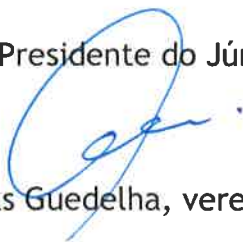 Presidente do Jú
Guedelha, vere